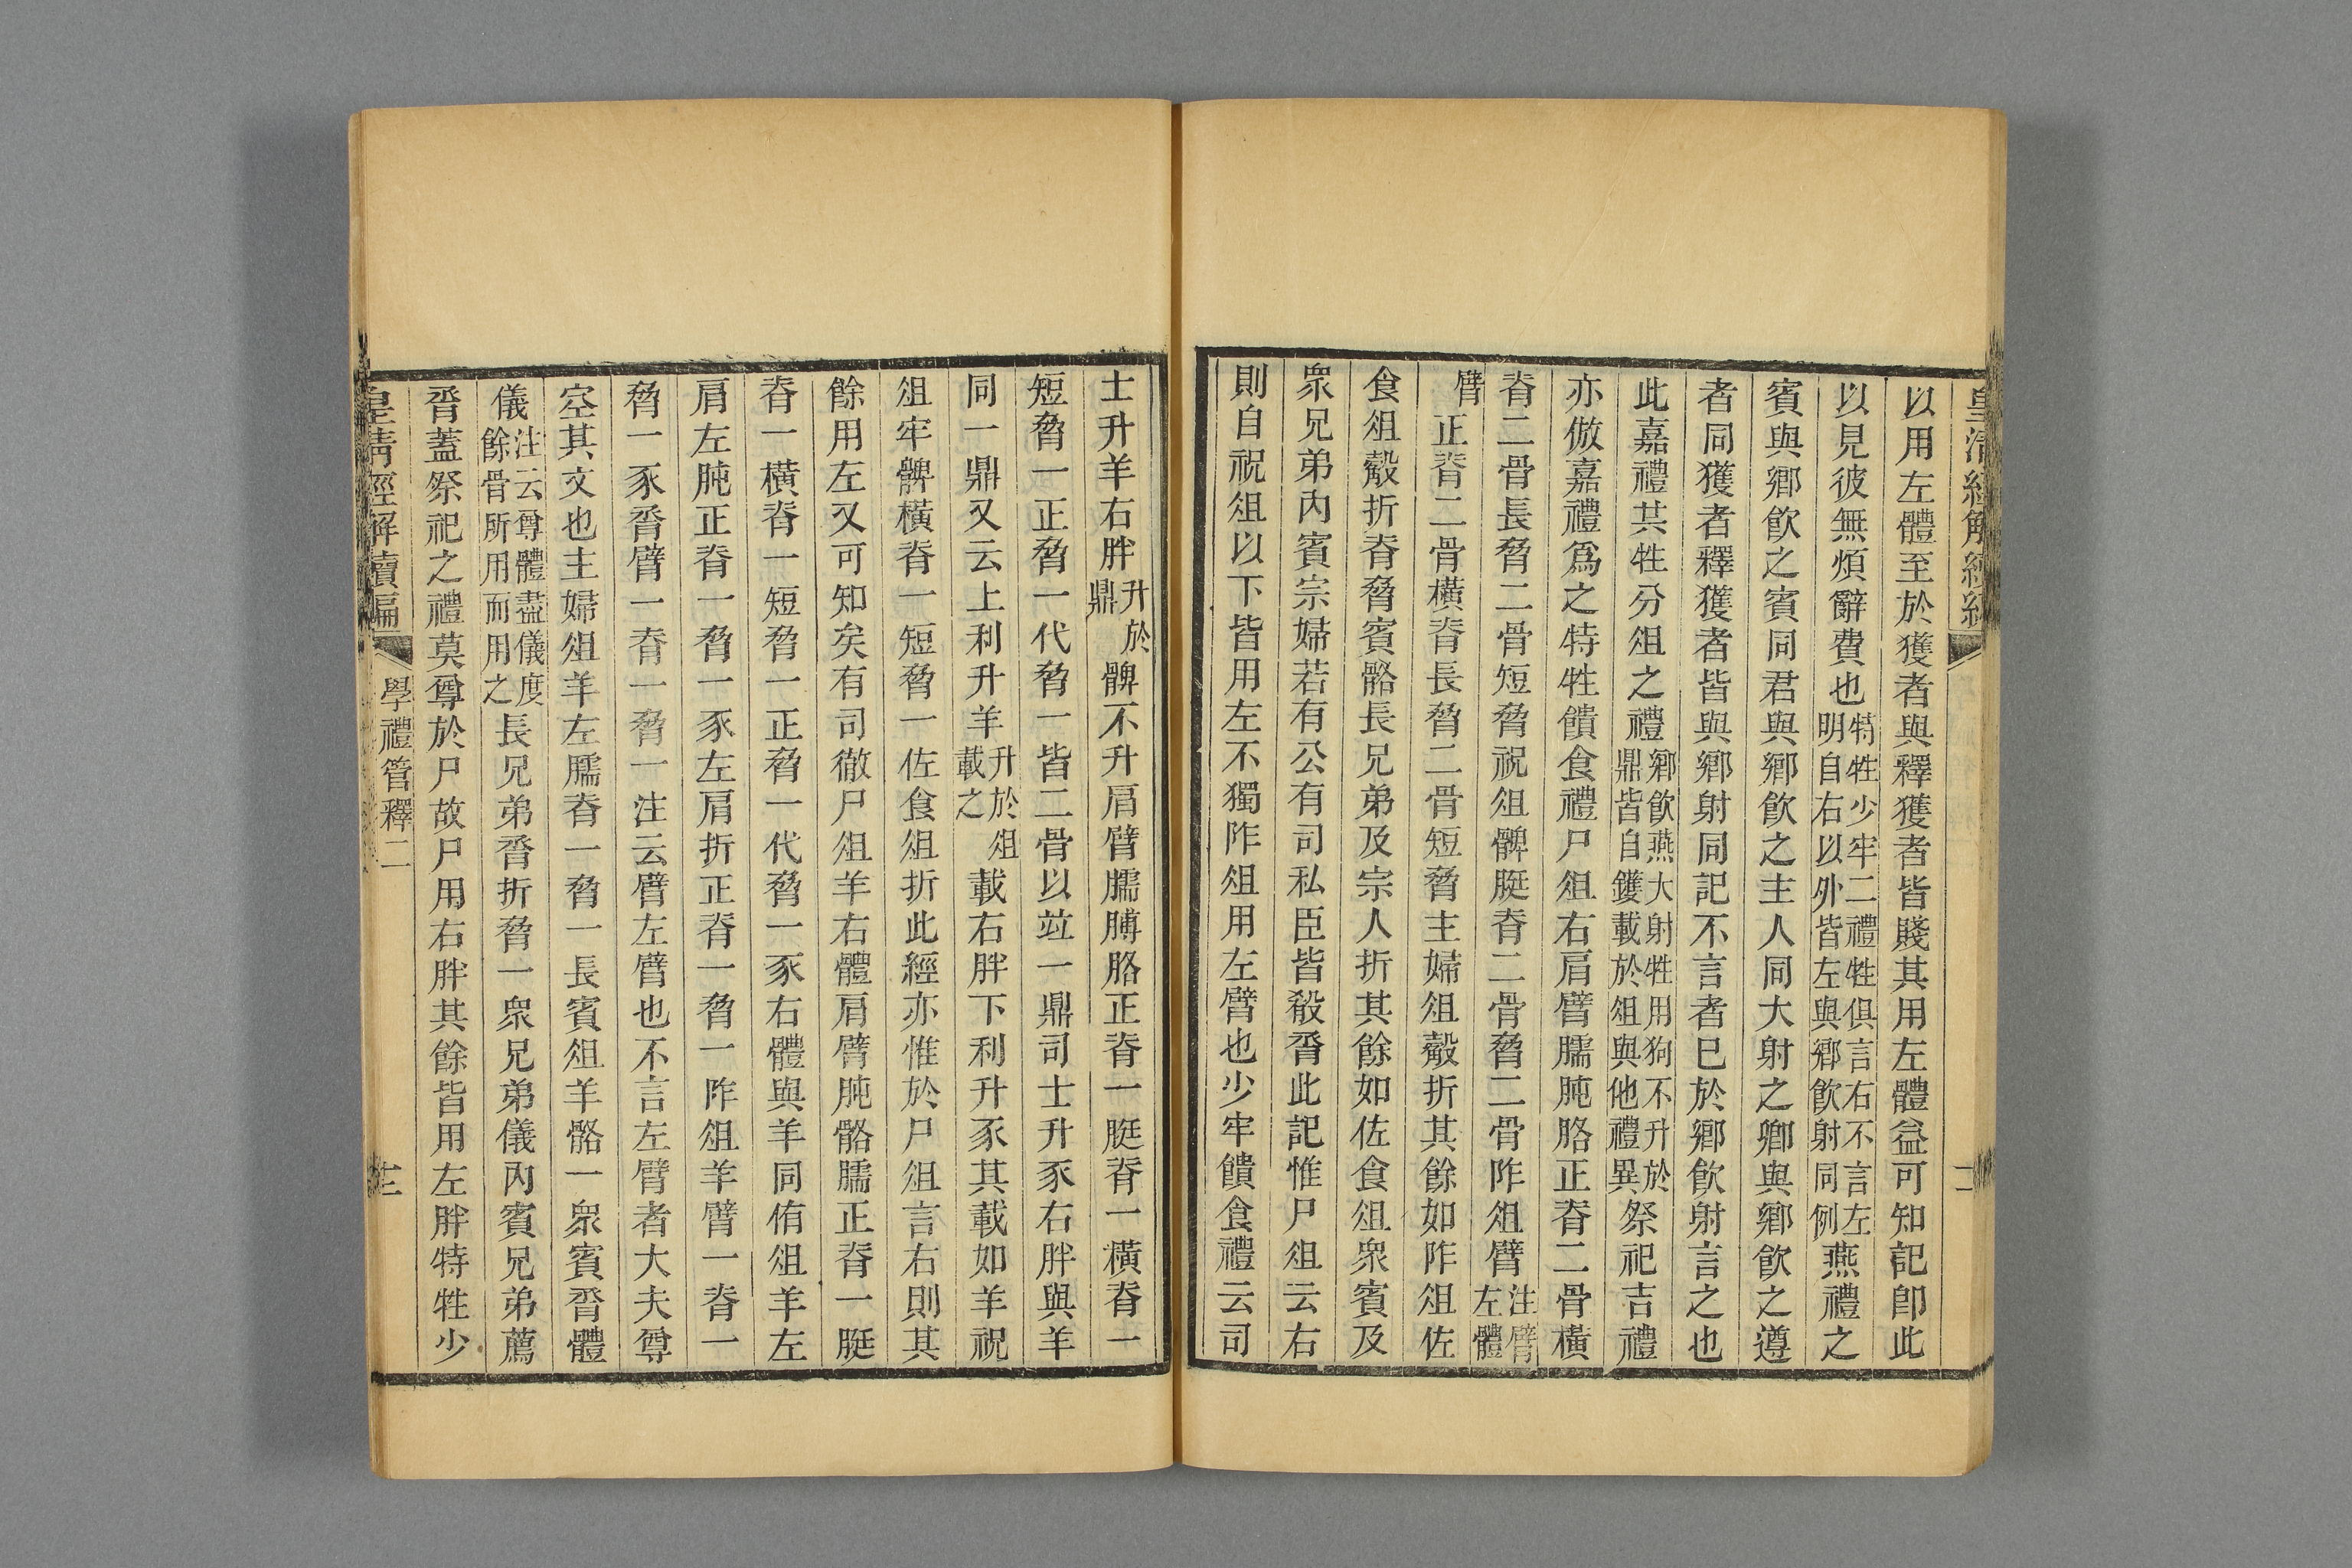 以用左體至於獲者與釋獲者皆賤其用左體益可知記卽此
以見彼無煩辭費也特牲少牢二禮牲俱言右不言左明自右以外皆左與鄉飮射同例燕禮之
賓與鄉飮之賓同君與鄉飮之主人同大射之卿與鄉飮之遵
者同獲者釋獲者皆與鄉射同記不言者已於鄉飮射言之也
此嘉禮其牲分俎之禮鄉飮燕大射牲用狗不升於鼎皆自鑊載於俎與他禮異祭祀吉禮
亦倣嘉禮爲之特牲饋食禮尸俎右肩臂臑肫胳正脊二骨橫
脊二骨長脅二骨短脅祝俎髀脡脊二骨脅二骨阼俎臂注臂左體
臂正脊二骨橫脊長脅二骨短脅主婦俎觳折其餘如阼俎佐
食俎觳折脊脅賓骼長兄弟及宗人折其餘如佐食俎眾賓及
眾兄弟內賓宗婦若有公有司私臣皆殽脀此記惟尸俎云右
則自祝俎以下皆用左不獨阼俎用左臂也少牢饋食禮云司
士升羊右胖升於鼎髀不升肩臂臑膊胳正脊一脡脊一橫脊一
短脅一正脅一代脅一皆二骨以竝一鼎司士升豕右胖與羊
同一鼎又云上利升羊升於俎載之載右胖下利升豕其載如羊祝
俎牢髀橫脊一短脅一佐食俎折此經亦惟於尸俎言右則其
餘用左又可知矣有司徹尸俎羊右體肩臂肫骼臑正脊一脡
脊一橫脊一短脅一正脅一代脅一豕右體與羊同侑俎羊左
肩左肫正脊一脅一豕左肩折正脊一脅一阼俎羊臂一脊一
脅一豕脀臂一脊一脅一注云臂左臂也不言左臂者大夫尊
空其文也主婦俎羊左臑脊一脅一長賓俎羊骼一眾賓脀體
儀注云尊體盡儀度餘骨所用而用之長兄弟脀折脅一眾兄弟儀內賓兄弟薦
脀蓋祭祀之禮莫尊於尸故尸用右胖其餘皆用左胖特牲少
皇清經解續編
學禮管釋二